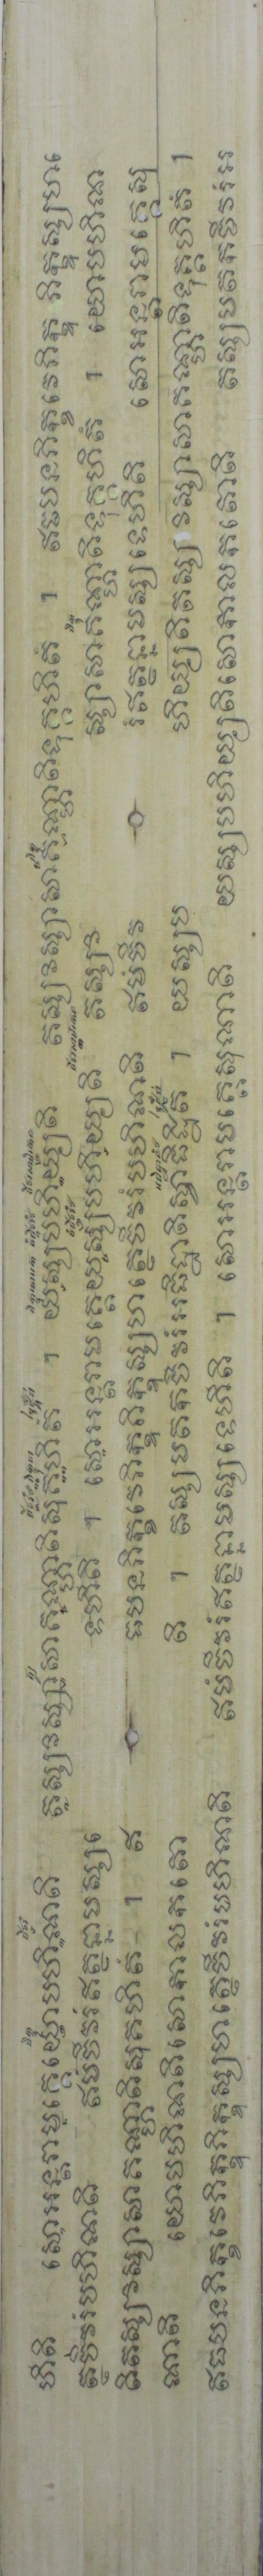 ហីតិ សោអន្តរាមគ្គេយោបហិណតិ តស្សវិស្សាសាគណ្ហាតិសុគ្គហិតំ ។ យស្សបហិយ្យតិ តស្សវិស្សាសាគណ្ហាតិទុគ្គហិតំ ។ ឥធបនភិក្ខវេភិក្ខុ ភិក្ខុស្សហេ
ត្ថចីវរំបហិណតិ ឥមំចីវរំឥត្ថន្នាមស្សេ ទហីតិ ។ សោអន្តរាមគ្គេយស្សបហិយ្យតិ តស្សវិ ស្សាសាគណ្ហាតិទុគ្គហិតំ ។ យោបហិណ
តិតស្សវិស្សាសាគណ្ហាតិសុគហិតំ ។ ឥ ធបនភិក្ខវេភិក្ខុភិក្ខុស្សហត្ថេចីវរំបហិណតិ ឥមំចីវ រំឥត្ថន្នាមស្សទេហីតិ សោអន្តរាមគ្គេសុ
ណាតិ យោបហិណតិសោកាលកតោ តិ ។ តស្សមតកចីវរំអធិដ្ឋាតិស្វាធិដ្ឋិតំ ។ យស្សប ហិយ្យតិតស្សវិស្សាសាគណ្ហាតិទុគ្គហិតំ ។
ឥធបនភិក្ខវេភិក្ខុភិក្ខុស្សហត្ថេចីវរំបហិណតិ ឥមំចីវរំឥត្ថន្នាមស្សទេហីតិ ។ សោអន្តរាមគ្គេសុណាតិ យស្សបហិយ្យតិសោកាលកតោតិ តស្សមតកចីវរំអ